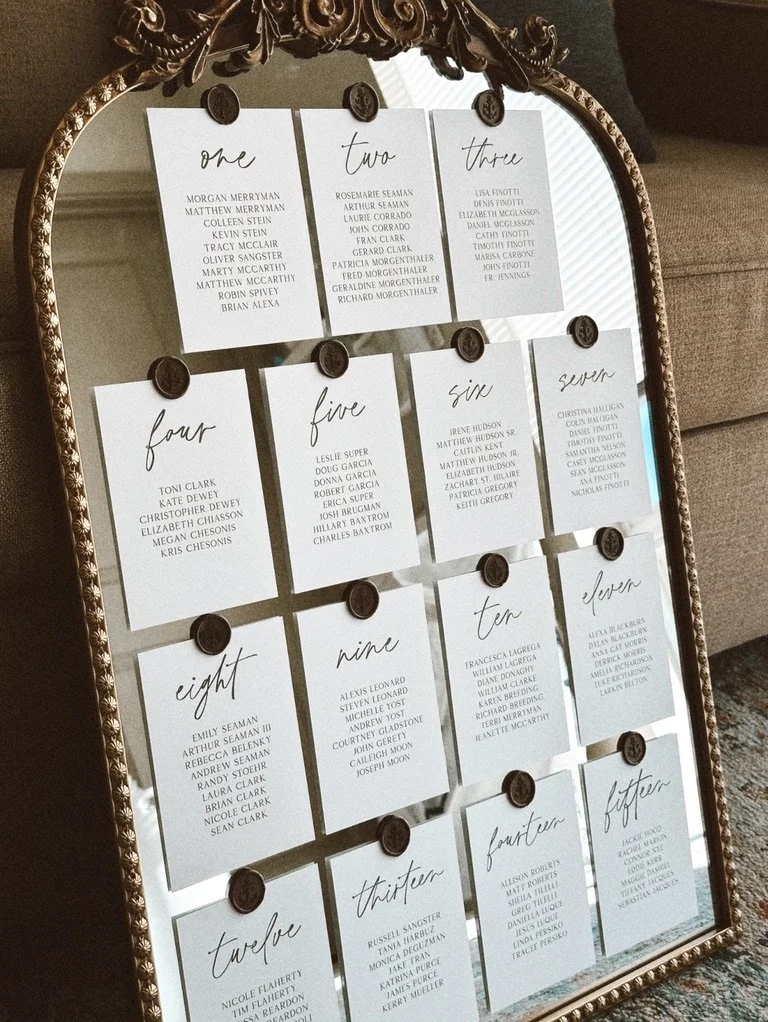 one
MORGAN MERRYMAN
MATTHEW MERRYMAN
COLLEEN STEIN
KEVIN STEIN
TRACY MCCLAIR
OLIVER SANGSTER
MARTY MCCARTHY
MATTHEW MCCARTHY
ROBIN SPIVEY
BRIAN ALEXA
two
ROSEMARIE SEAMAN
ARTHUR SEAMAN
LAURIE CORRADO
JOHN CORRADO
FRAN CLARK
GERARD CLARK
PATRICIA MORGENTHALER
FRED MORGENTHALER
GERALDINE MORGENTHALER
RICHARD MORGENTHALER
three
LISA FINOTTI
DENIS FINOTTI
ELIZABETH MCGLASSON
DANIEL MCGLASSON
CATHY FINOTTI
TIMOTHY FINOTTI
MARISA CARBONE
JOHN FINOTTI
FR. JENNINGS
four
TONI CLARK
KATE DEWEY
CHRISTOPHER DEWEY
ELIZABETH CHIASSON
MEGAN CHESONIS
KRIS CHESONIS
five
LESLIE SUPER
DOUG GARCIA
DONNA GARCIA
ROBERT GARCIA
ERICA SUPER
JOSH BRUGMAN
HILLARY BAXTROM
CHARLES BAXTROM
six
IRENE HUDSON
MATTHEW HUDSON SR.
CAITLIN KENT
MATTHEW HUDSON JR.
ELIZABETH HUDSON
ZACHARY ST. HILAIRE
PATRICIA GREGORY
KEITH GREGORY
seven
CHRISTINA HALLIGAN
COLIN HALLIGAN
DANIEL FINOTTI
TIMOTHY FINOTTI
SAMANTHA NELSON
CASEY MCGLASSON
SEAN MCGLASSON
ANA FINOTTI
NICHOLAS FINOTTI
eight
EMILY SEAMAN
ARTHUR SEAMAN III
REBECCA BELENKY
ANDREW SEAMAN
RANDY STOEHR
LAURA CLARK
BRIAN CLARK
NICOLE CLARK
SEAN CLARK
nine
ALEXIS LEONARD
STEVEN LEONARD
MICHELLE YOST
ANDREW YOST
COURTNEY GLADSTONE
JOHN GERETY
CAILEIGH MOON
JOSEPH MOON
ten
FRANCESCA LAGREGA
WILLIAM LAGREGA
DIANE DONAGHY
WILLIAM CLARKE
KAREN BREEDING
RICHARD BREEDING
TERRI MERRYMAN
JEANETTE MCCARTHY
eleven
ALEXA BLACKBURN
DYLAN BLACKBURN
ANNA CAT MORRIS
DERRICK MORRIS
AMELIA RICHARDSON
LUKE RICHARDSON
LARKIN BELTON
twelve
NICOLE FLAHERTY
TIM FLAHERTY
REARDON
REARDON
thirteen
RUSSELL SANGSTER
TANIA HARBUZ
MONICA DEGUZMAN
JAKE TRAN
KATRINA PURCE
JAMES PURCE
KERRY MUELLER
fourteen
ALLISON ROBERTS
MATT ROBERTS
SHEILA TILELLI
GREG TILELLI
DANIELLA LUQUE
JESUS LUQUE
LINDA PERSIKO
TRACEE PERSIKO
fifteen
JACKIE HOOD
RACHEL MARION
CONNOR NYE
EDDIE KERR
MAGGIE DAMHEL
TIFFANY JACQUES
SEBASTIAN JACQUES